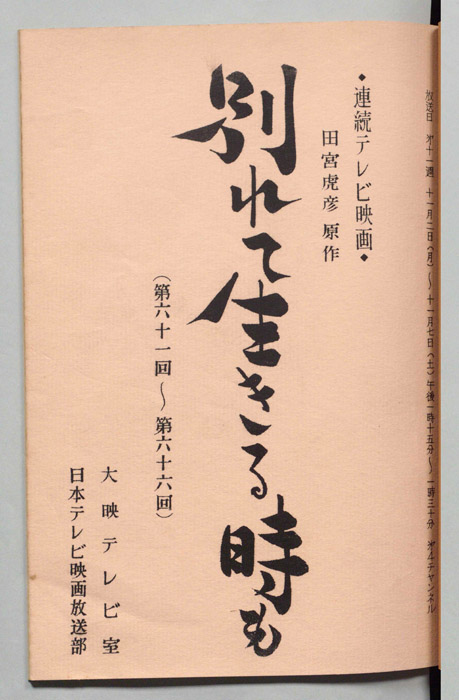 放送日 第十一週 十一月二日(月)～十一月七日(土)午後一時十五分～一時三十分 第4チャンネル
◆連続テレビ映画◆
田宮虎彦原作
別れて生きる時も
(第六十一回～第六十六回)
大映テレビ室
日本テレビ映画放送部